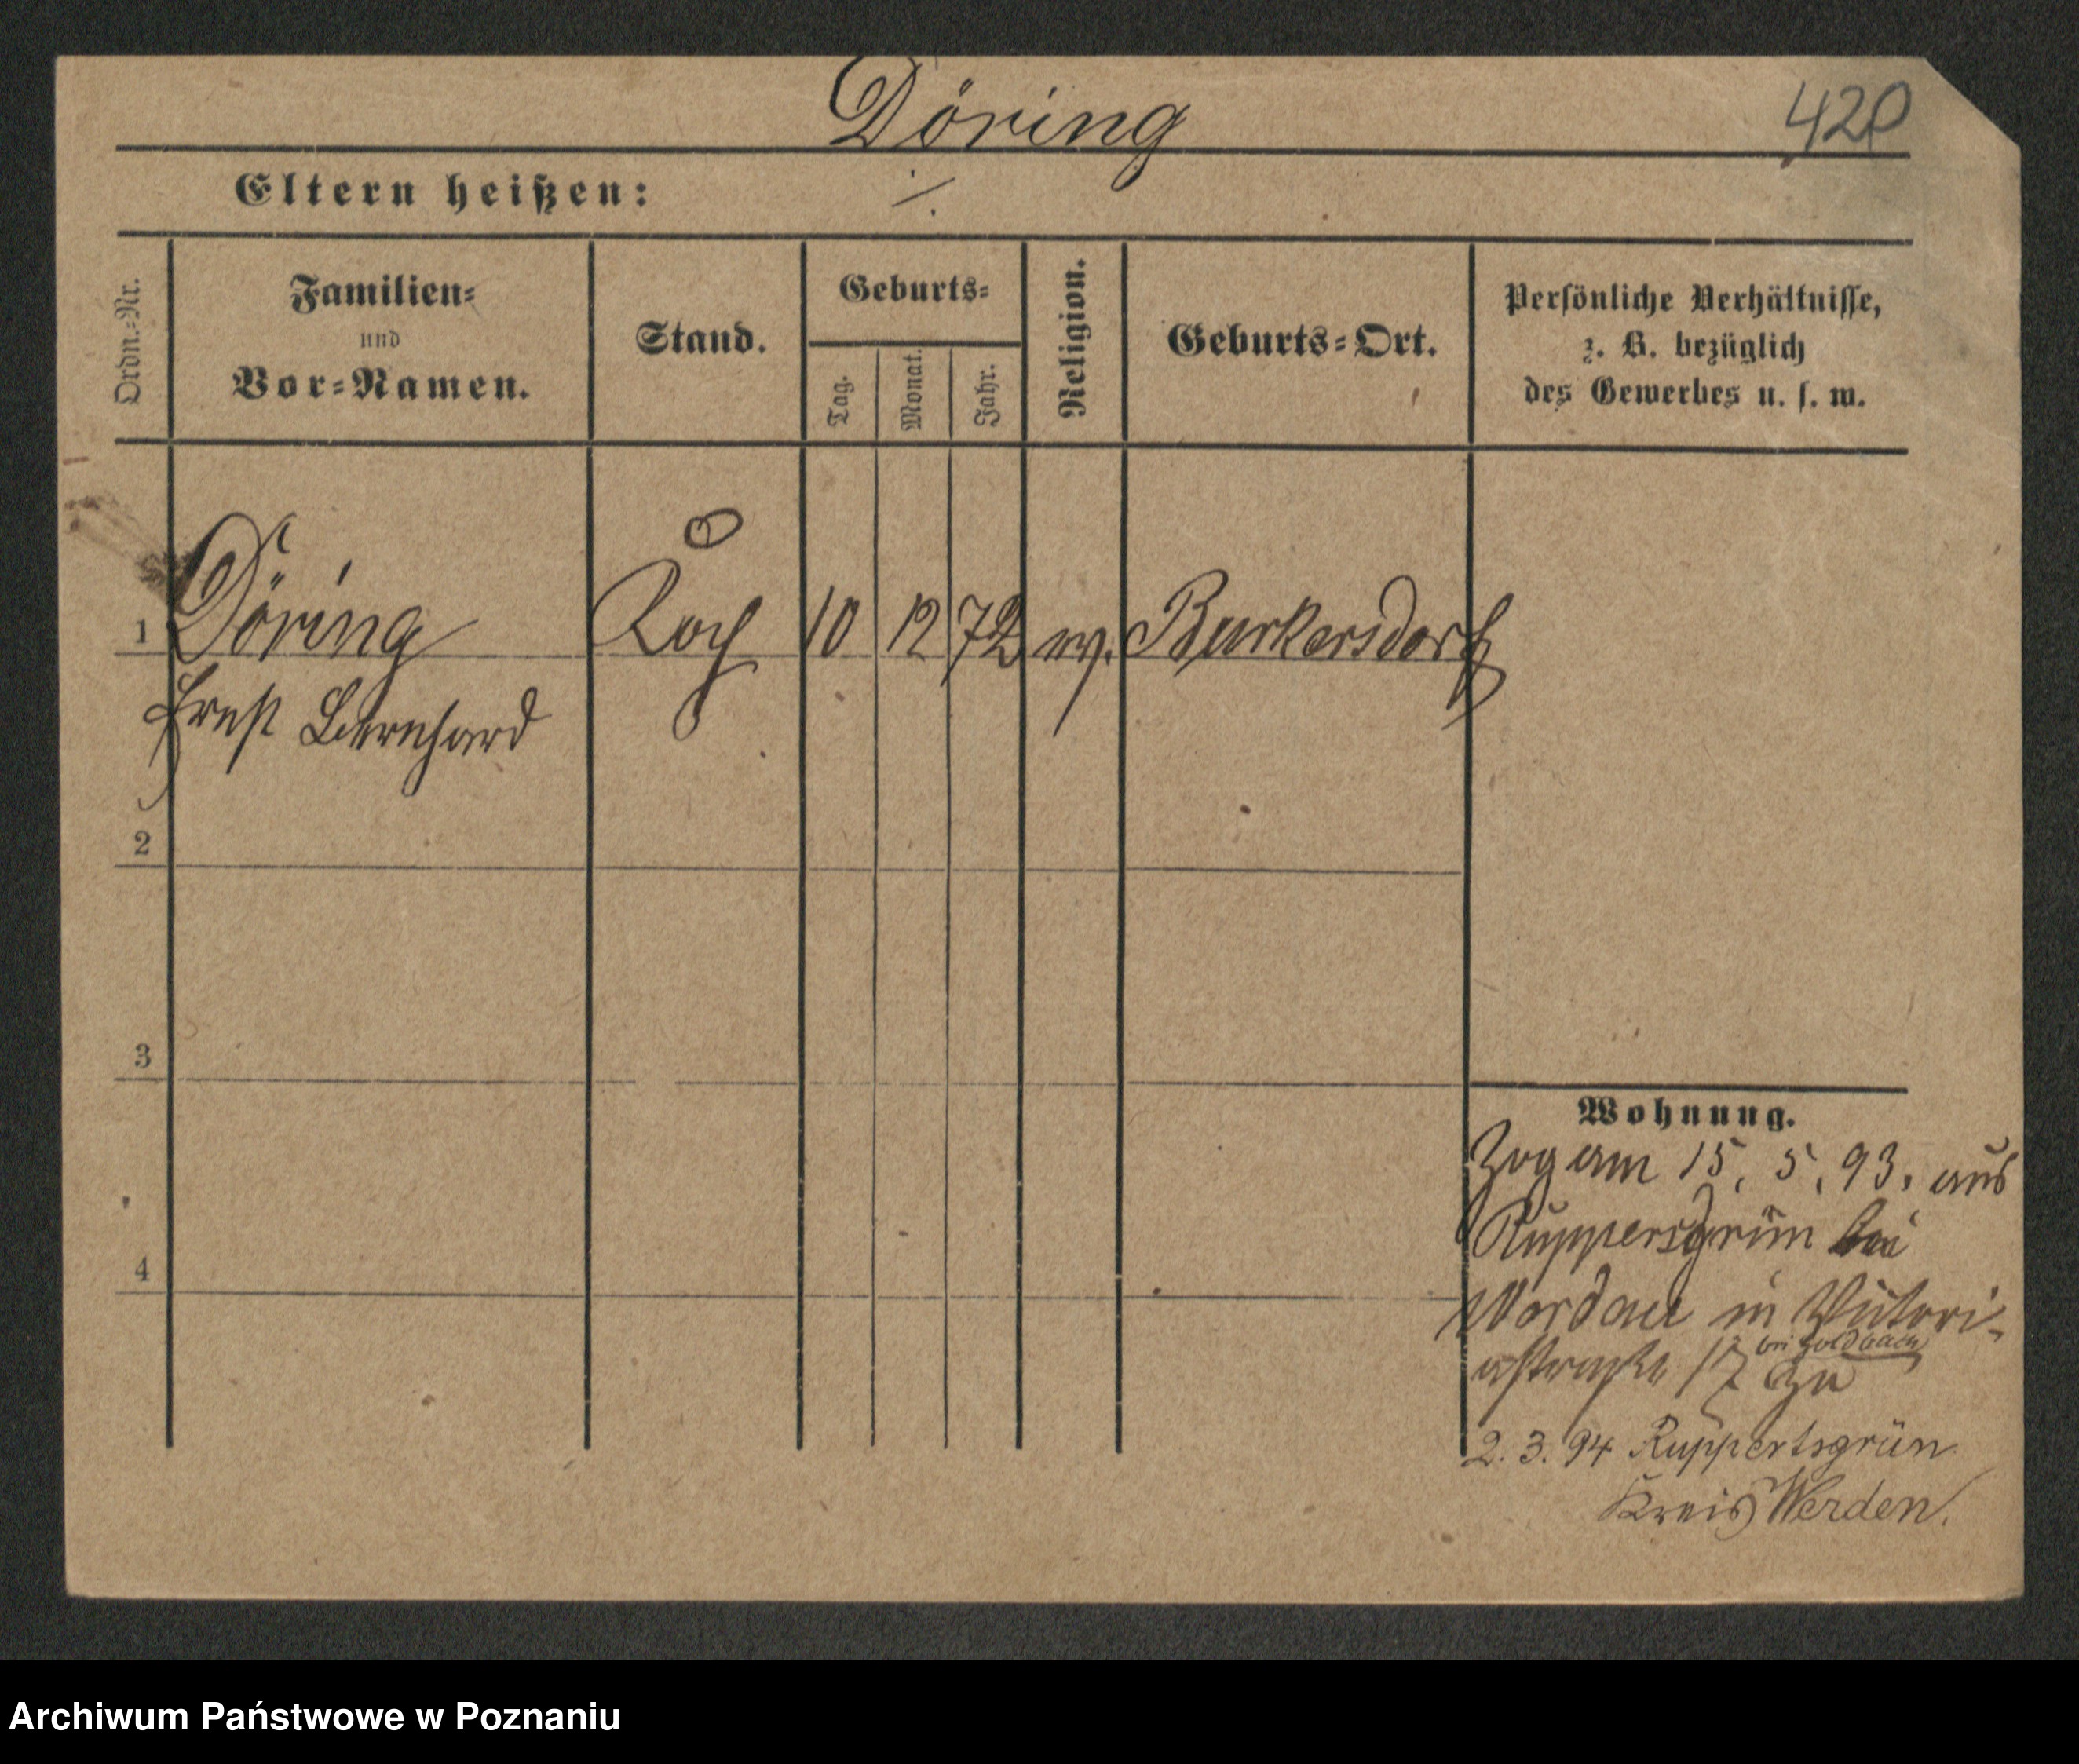 Döring
420
Eltern heißen: ./.
Ordn.-Nr.
Familien-
und
Vor-Namen.
Stand.
Geburts-
Tag.
Monat.
Jahr.
Religion.
Geburts-Ort.
Persönliche Verhältnisse,
z. B. bezüglich
des Gewerbes u. s. w.
1 Döring Koch 10 12 72 ev. Burkersdorf
Ernst Bernhard
2
3
4
Wohnung.
Zog am 15. 5. 93. aus
Ruppersgrün bei
Werdau in Victori-
astraße 17 bei Goldbach zu
2. 3. 94 Ruppertsgrün
Kreis Werden.
Archiwum Państwowe w Poznaniu